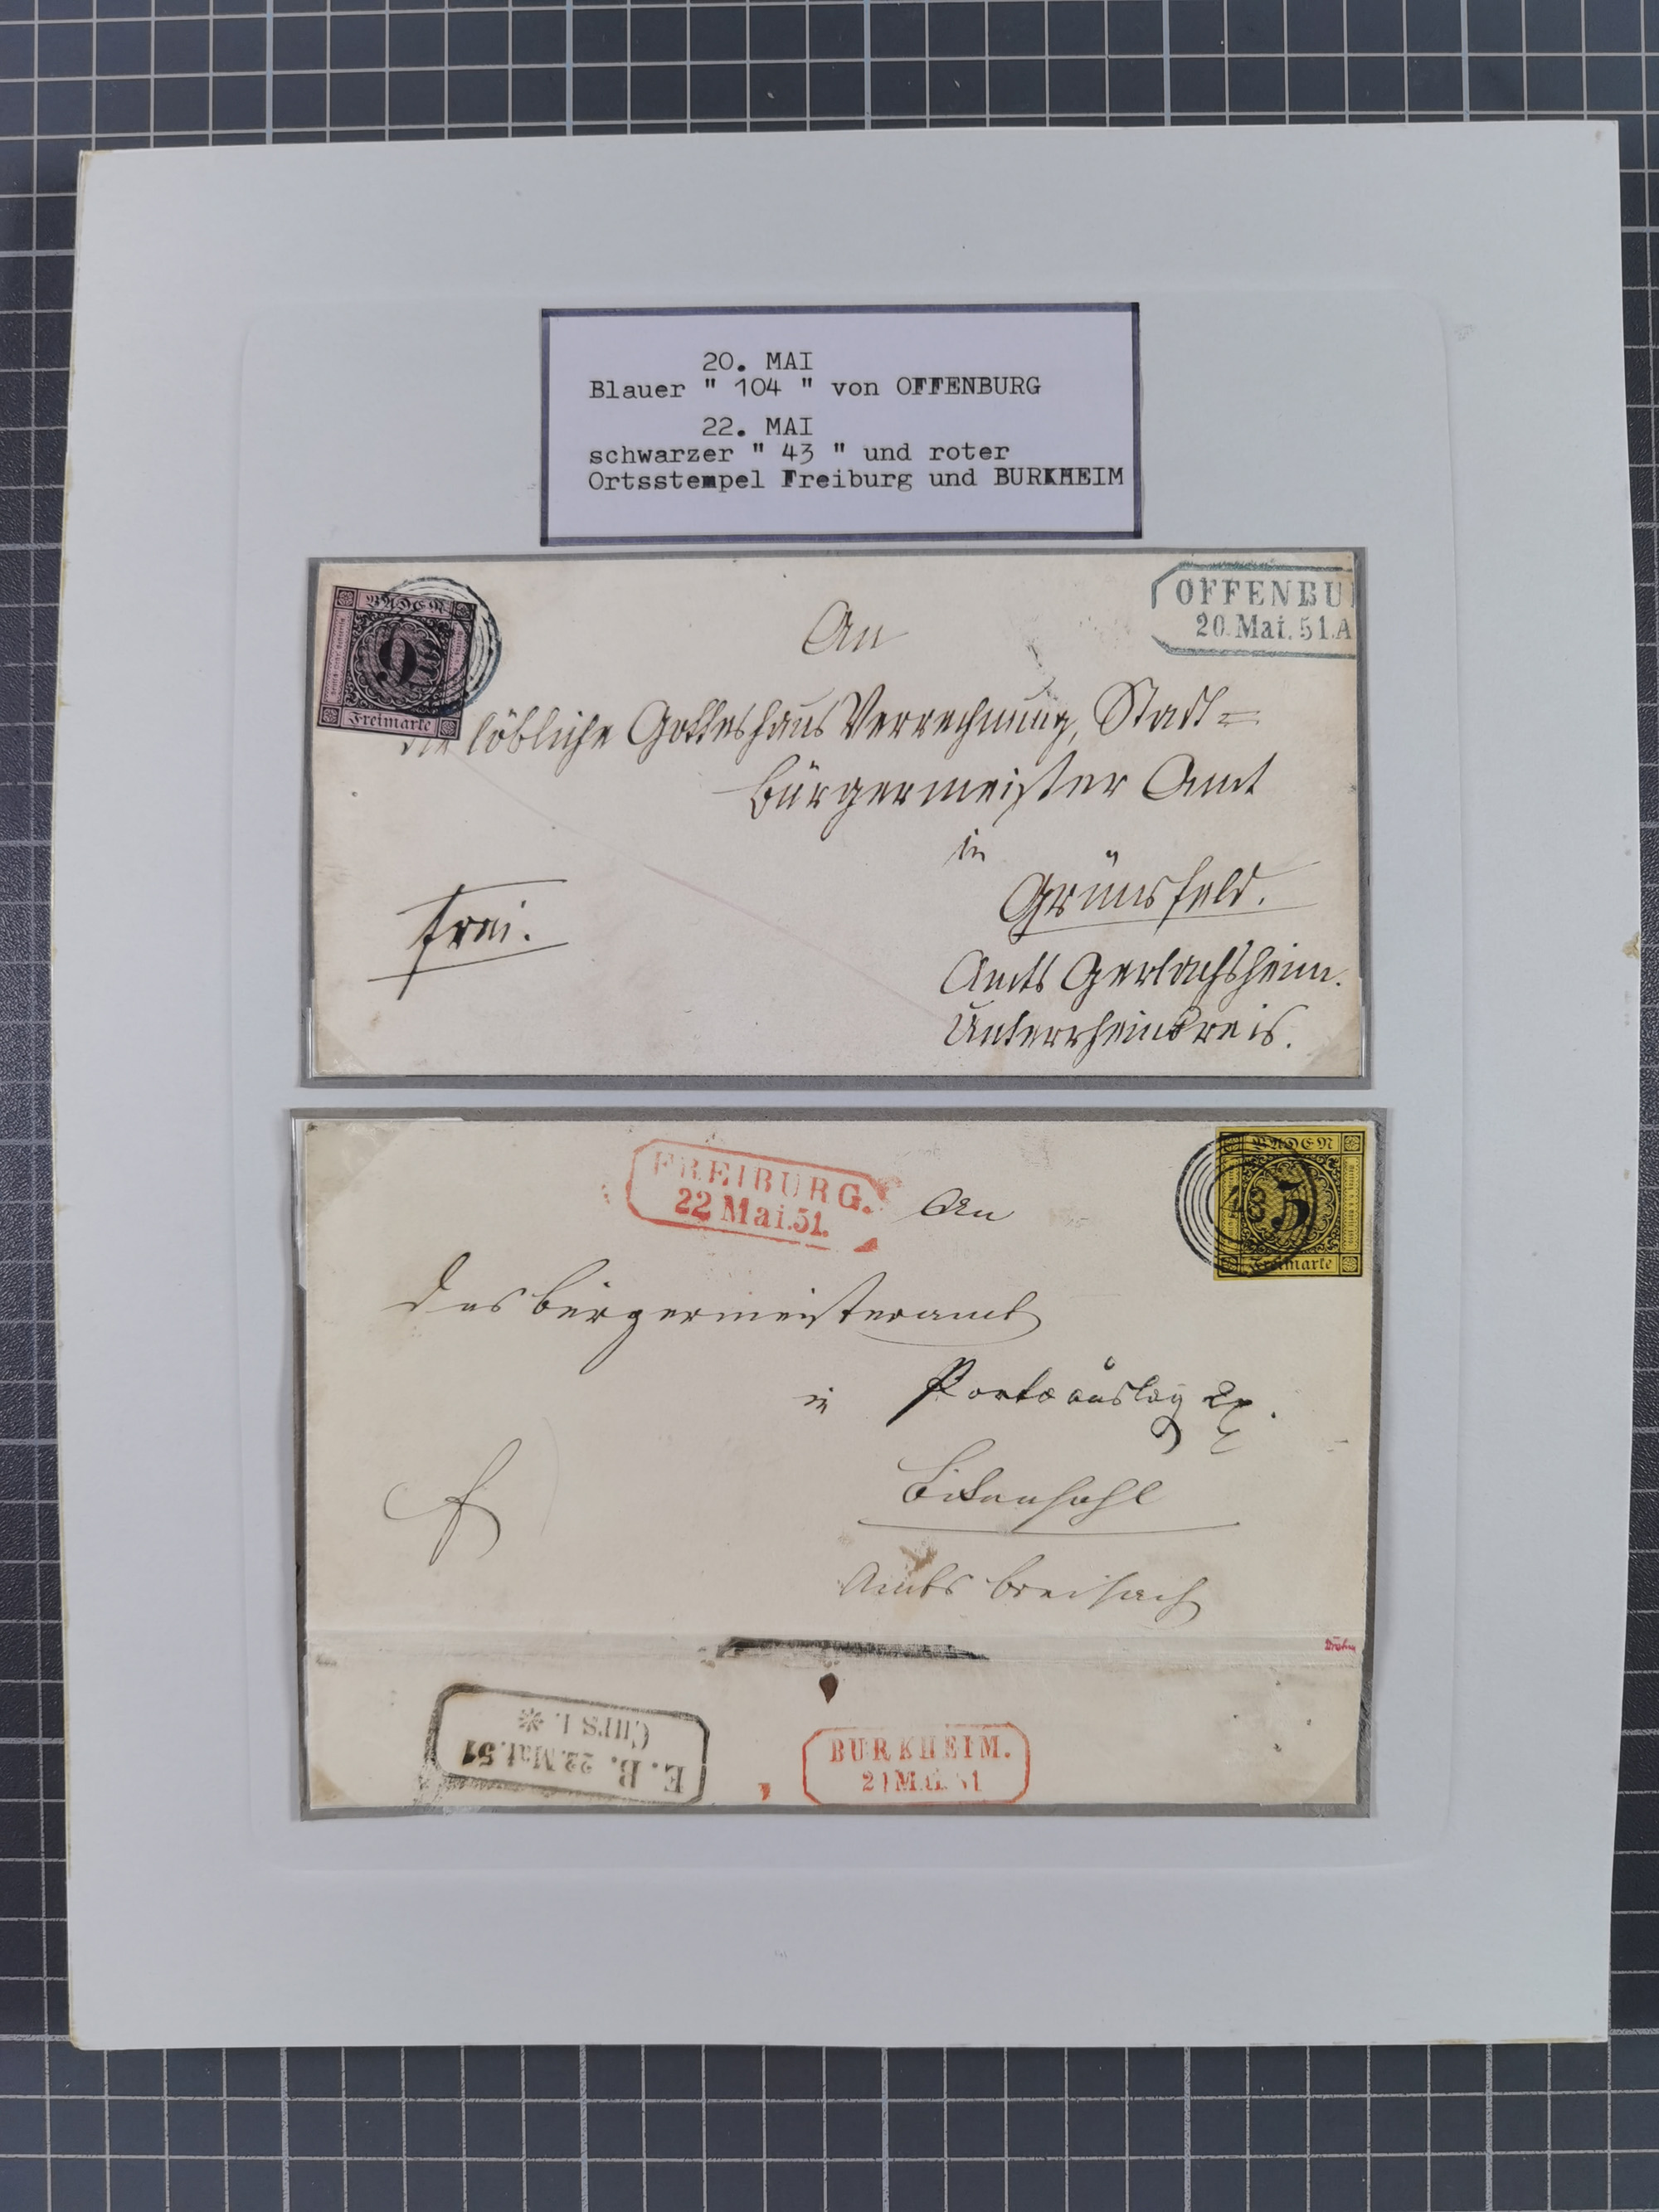 20. MAI
Blauer " 104 " von OFFENBURG
22. MAI
schwarzer " 43 " und roter
Ortsstempel Freiburg und BURKHEIM
BADEN
9
Freimarke
OFFENBU
20. Mai. 51. A
An
die löbliche Gotteshaus Verrechnung, Stadt=
bürgermeister Amt
in
Grünsfeld.
frei.
Amts Gerlachsheim.
Unterrheinkreis.
FREIBURG.
22 Mai. 51.
An
BADEN
43
3
Freimarke
das Bürgermeisteramt
in
Portoauslag 2x.
Amts Breisach
E. B. 22. Mai. 51
Curs I. *
BURKHEIM.